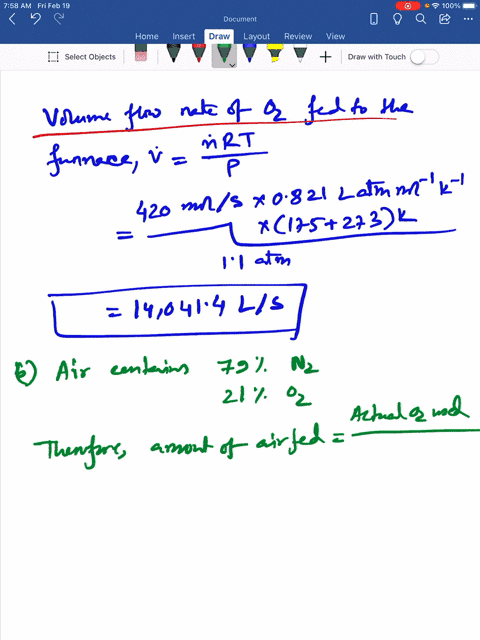 7:58 AM Fri Feb 19
100%
Document
Home Insert Draw Layout Review View
Select Objects
Draw with Touch
Volume flow rate of O2 fed to the
furnace, V̇ = ṅRT
P
= 420 mol/s × 0.821 L atm mol⁻¹ K⁻¹
×(175+273)K
1.1 atm
= 14,041.4 L/s
b) Air contains 79% N2
21% O2
Actual O2 used
Therefore, amount of air fed =